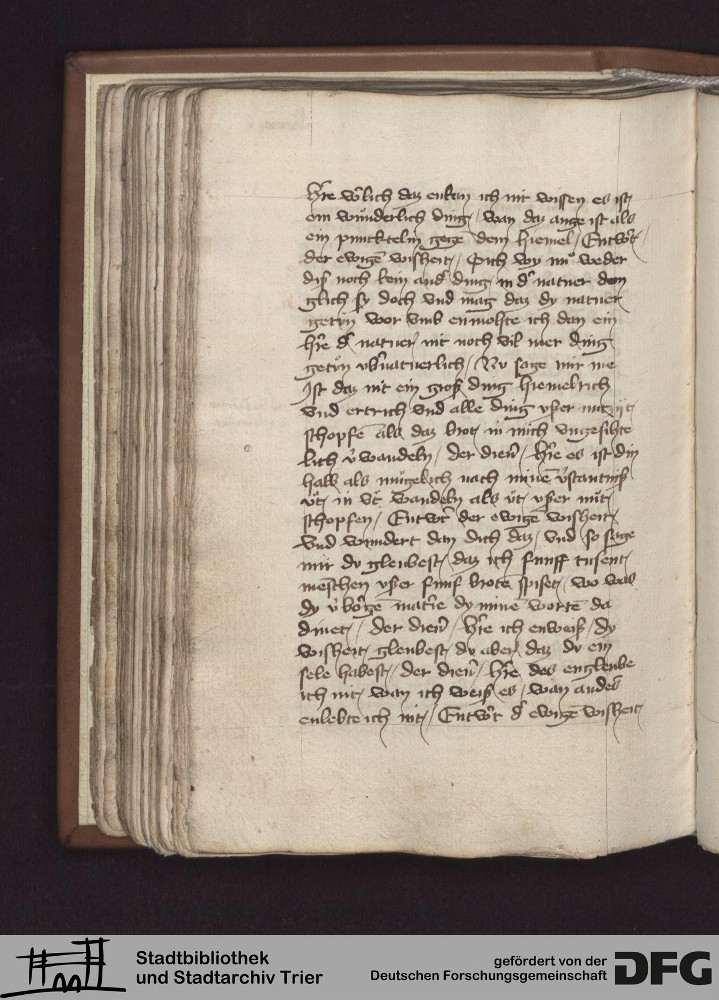 h're w'lich daz enkan ich nit wissen es ist
ein wunderlich ding / wan daz auge ist als
ein puncktelin gege dem hiemel / Entw't
der ewige wisheit / Sich wy nu weder
diß noch kein and' ding in d' natuer dem
glich sy doch vnd mag daz dy natuer
getun wor vmb enmolste ich dan ein
h're d' natuer nit noch vil mer ding
getun vb'natuerlich / Nv sage mir me
Ist daz nit ein groß ding hiemelrich
vnd ertrich vnd alle ding vßer nit
schopfe als daz brot in mich vngesihte
lich v'wandeln / der dien' / h're es ist din
halb als mugelich nach mine v'stantniß
vt in vt wandeln als vt vßer nut
schopfen / Entw't der ewige wisheit
vnd wundert dan dich daz / vnd so sage
mir du gleubest daz ich funff tusent
meschen vßer funf brote spiset / wo was
dy v'borge mat'ie dy mine worte da
dinet / der dien' / h're ich enweiß / dy
wisheit gleubest du aber daz du ein
sele habest / der dien' / h're des engleube
ich nit / wan ich weiß es / wan anders
enlebte ich nit / Entw't d' ewige wisheit
Stadtbibliothek
und Stadtarchiv Trier
gefördert von der
Deutschen Forschungsgemeinschaft
DFG